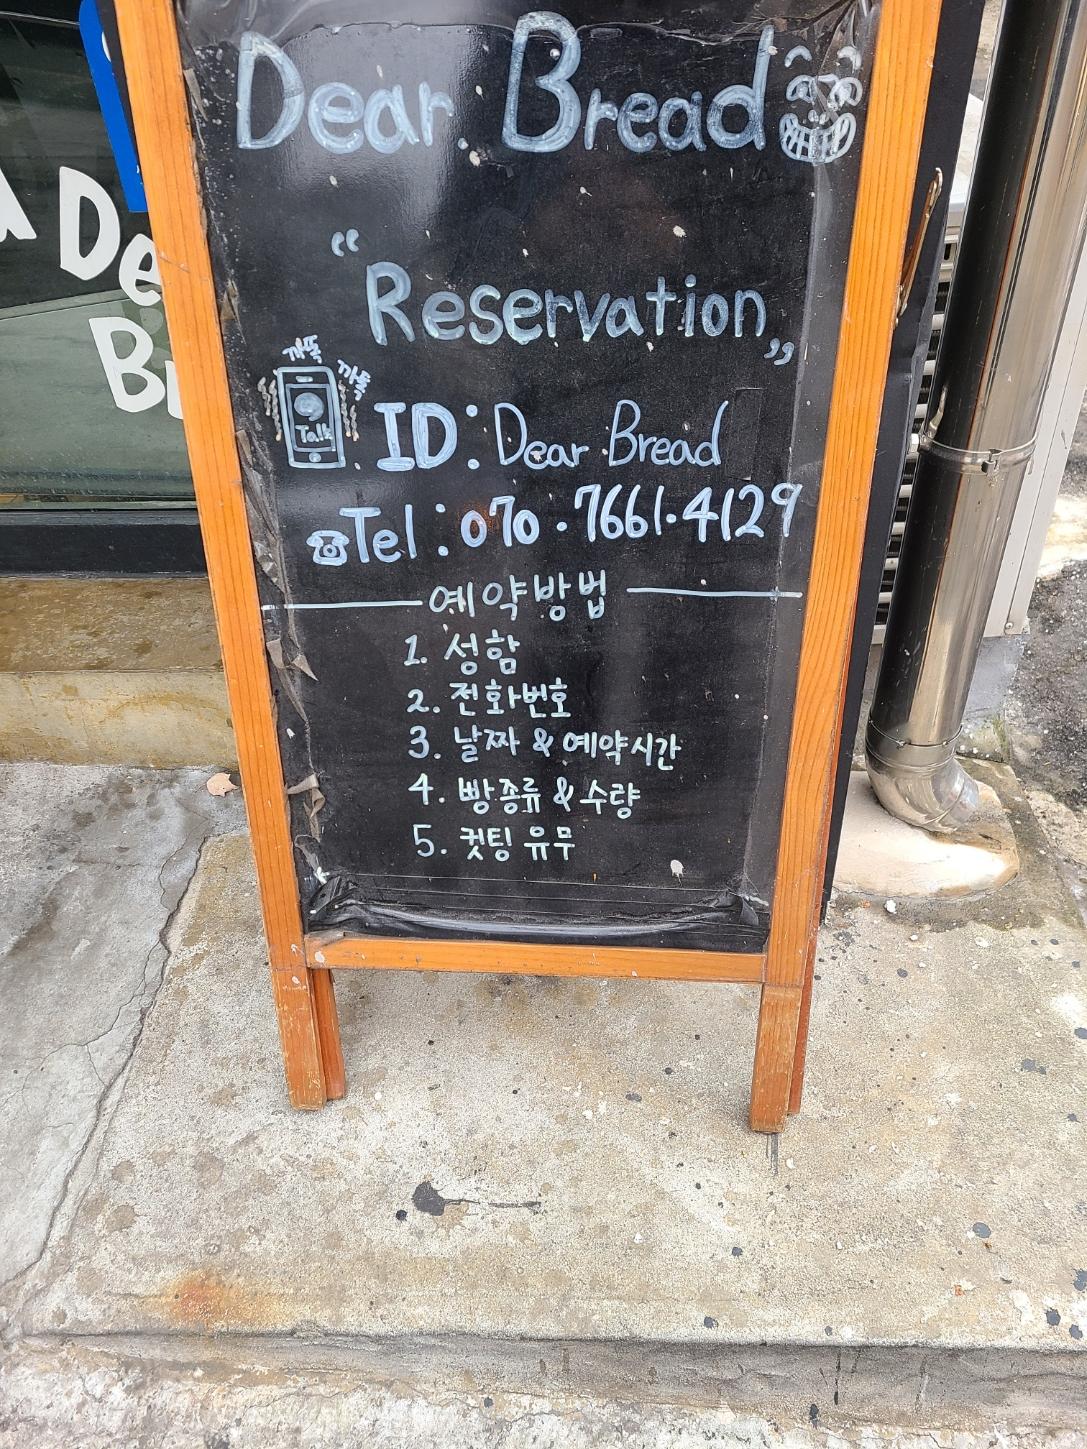 Dear. Bread
“Reservation”
까똑 까똑
Talk
ID: Dear Bread
Tel: 070.7661.4129
예약방법
1. 성함
2. 전화번호
3. 날짜 & 예약시간
4. 빵종류 & 수량
5. 컷팅 유무
De
B